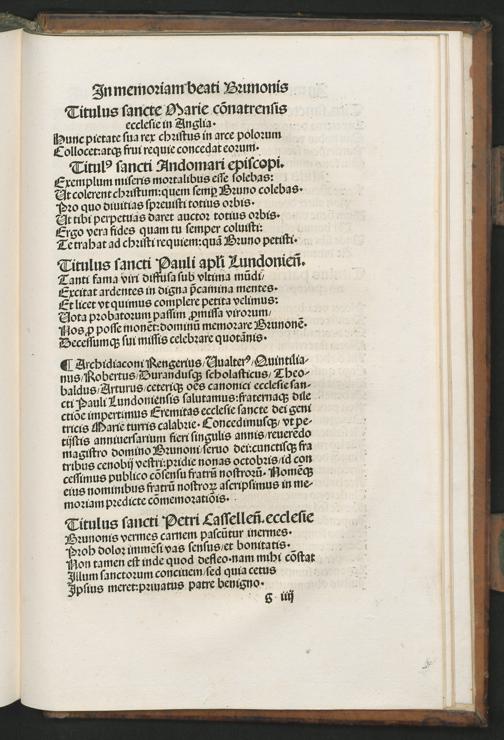 In memoriam beati Brunonis
Titulus sancte Marie cõnatrensis
ecclesie in Anglia.
Hunc pietate sua rex christus in arce polorum
Collocet: atq3 frui requie concedat eorum.
Titulꝰ sancti Andomari episcopi.
Exemplum miseris mortalibus esse solebas:
Ut colerent christum: quem semp̱ Bruno colebas.
Pro quo diuitias spreuisti totius orbis.
Ut tibi perpetuas daret auctor totius orbis.
Ergo vera fides quam tu semper coluisti:
Te trahat ad christi requiem: quã Bruno petisti.
Titulus sancti Pauli apl̃i Lundonien̄.
Tanti fama viri diffusa sub vltima mũdi/
Excitat ardentes in digna p̃camina mentes.
Et licet vt quimus complere petita velimus:
Uota probatorum passim ꝓmissa virorum/
Nos ꝓ posse monẽt: dominũ memorare Brunonẽ.
Decessumq3 sui missis celebrare quotãnis.
¶ Archidiaconi Rengerius/ Uualterꝰ/ Quintilia-
nus/ Robertus/ Durandusq3 scholasticus/ Theo-
baldus/ Arturus/ ceteriq3 oẽs canonici ecclesie san-
cti Pauli Lundoniensis salutamus: fraternaq3 dile
ctiõe impertimus Eremitas ecclesie sancte dei geni
tricis Marie turris calabrie. Concedimusq3/ vt pe-
tijstis anniuersarium fieri singulis annis/ reuerẽdo
magistro domino Brunoni/ seruo dei: cunctisq3 fra
tribus cenobij vestri: pridie nonas octobris/ id con
cessimus publico cõsensu fratrũ nostrorũ. Nomẽq3
eius nominibus fratrũ nostroꝝ ascripsimus in me-
moriam predicte cõmemoratiõis.
Titulus sancti Petri Cassellen̄. ecclesie
Brunonis vermes carnem pascũtur inermes.
Proh dolor immẽsi vas sensus/ et bonitatis.
Non tamen est inde quod defleo. nam mihi cõstat
Illum sanctorum conciuem/ sed quia cetus
Ipsius meret: priuatus patre benigno.
g iiij